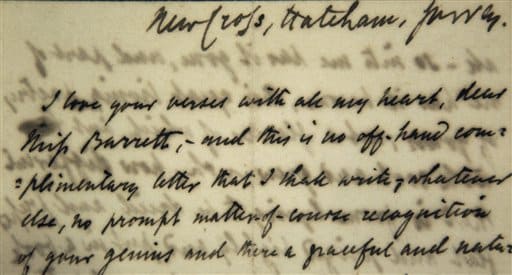 New Cross, Hatcham, Surrey.
I love your verses with all my heart, dear
Miss Barrett,- and this is no off-hand com=
=plimentary letter that I shall write,-whatever
else, no prompt matter-of-course recognition
of your genius and there a graceful and natu-